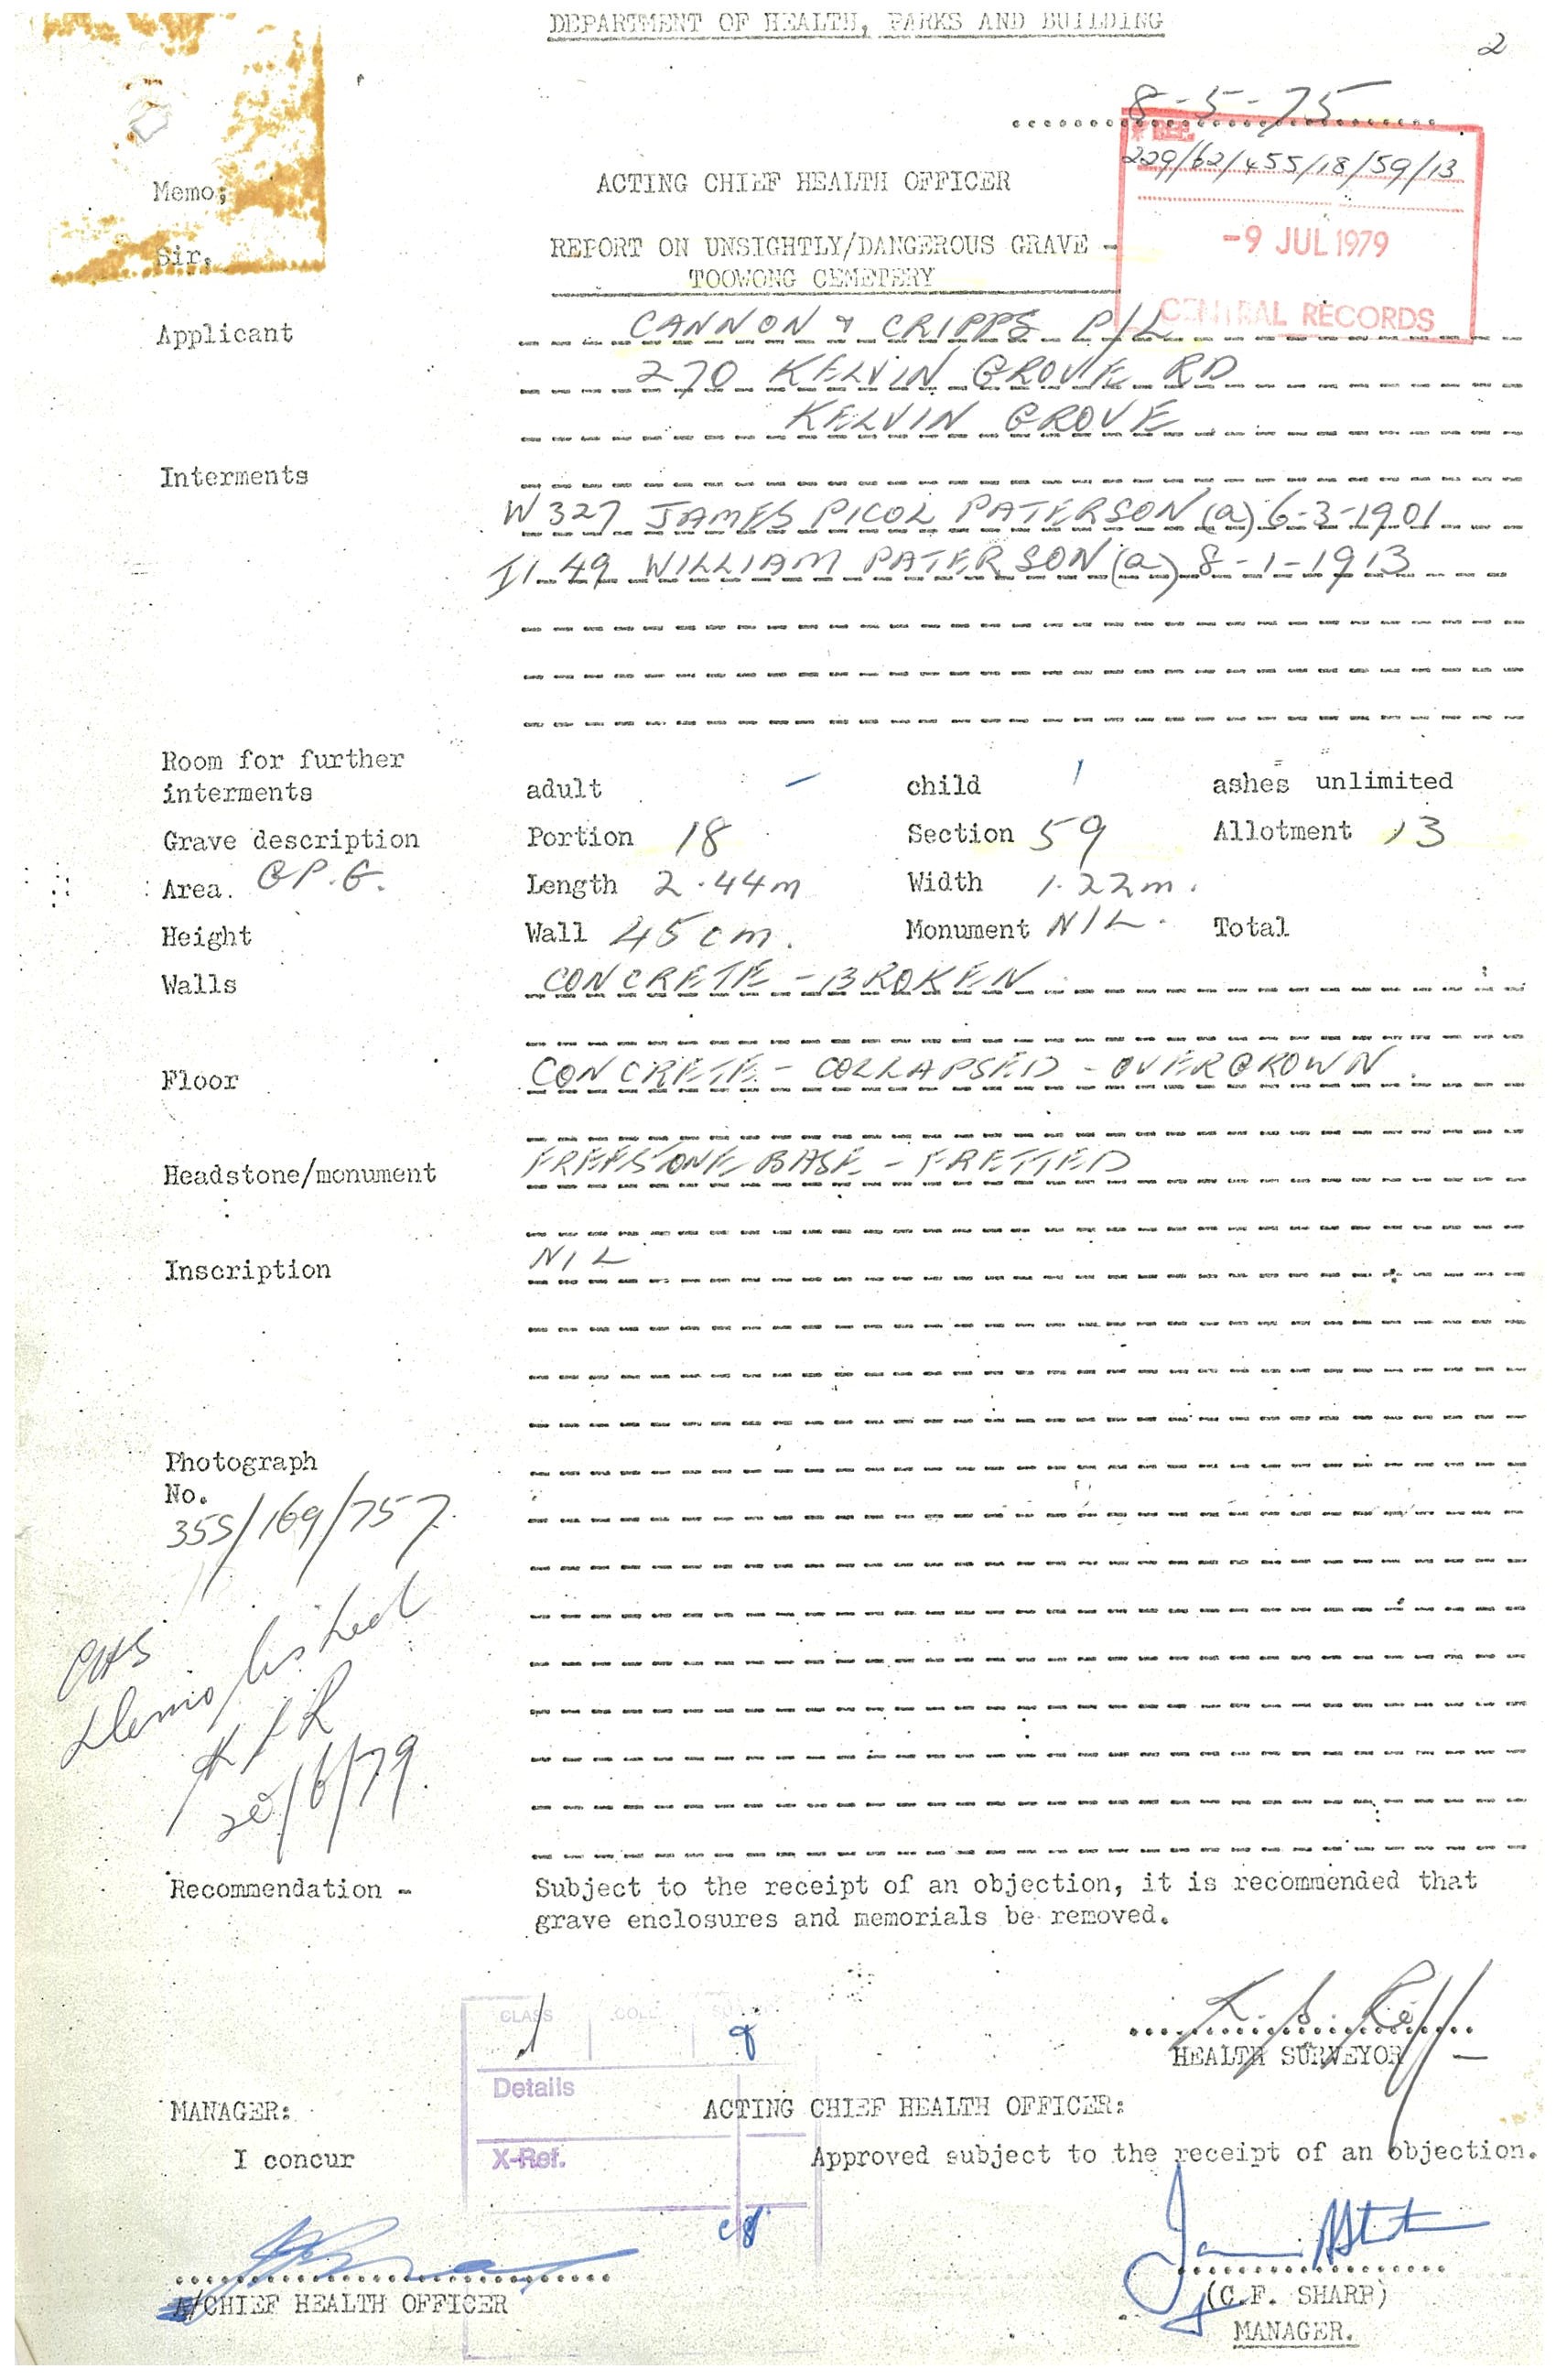 DEPARTMENT OF HEALTH, PARKS AND BUILDING
2
8-5-75
REC.
229/62/455/18/59/13
Memo;
ACTING CHIEF HEALTH OFFICER
-9 JUL 1979
Sir,
REPORT ON UNSIGHTLY/DANGEROUS GRAVE -
TOOWONG CEMETERY
CENTRAL RECORDS
Applicant
CANNON & CRIPPS P/L
270 KELVIN GROVE RD
KELVIN GROVE
Interments
W 327 JAMES PICOL PATERSON (a) 6-3-1901
49 WILLIAM PATERSON (a) 8-1-1913
Room for further
interments adult - child 1 ashes unlimited
Grave description Portion 18 Section 59 Allotment 13
Area. Length 2.44m Width 1.22m.
Height Wall 45cm. Monument NIL. Total
Walls CONCRETE - BROKEN
Floor CONCRETE - COLLAPSED - OVERGROWN.
Headstone/monument FREESTONE BASE - FRETTED
Inscription NIL
Photograph
No.
355/169/757.
CHS
Demolished
20/6/79.
Recommendation - Subject to the receipt of an objection, it is recommended that
grave enclosures and memorials be removed.
CLASS COLL
HEALTH SURVEYOR
Details
MANAGER: ACTING CHIEF HEALTH OFFICER:
I concur X-Ref. Approved subject to the receipt of an objection.
A/CHIEF HEALTH OFFICER (C.F. SHARP)
MANAGER.